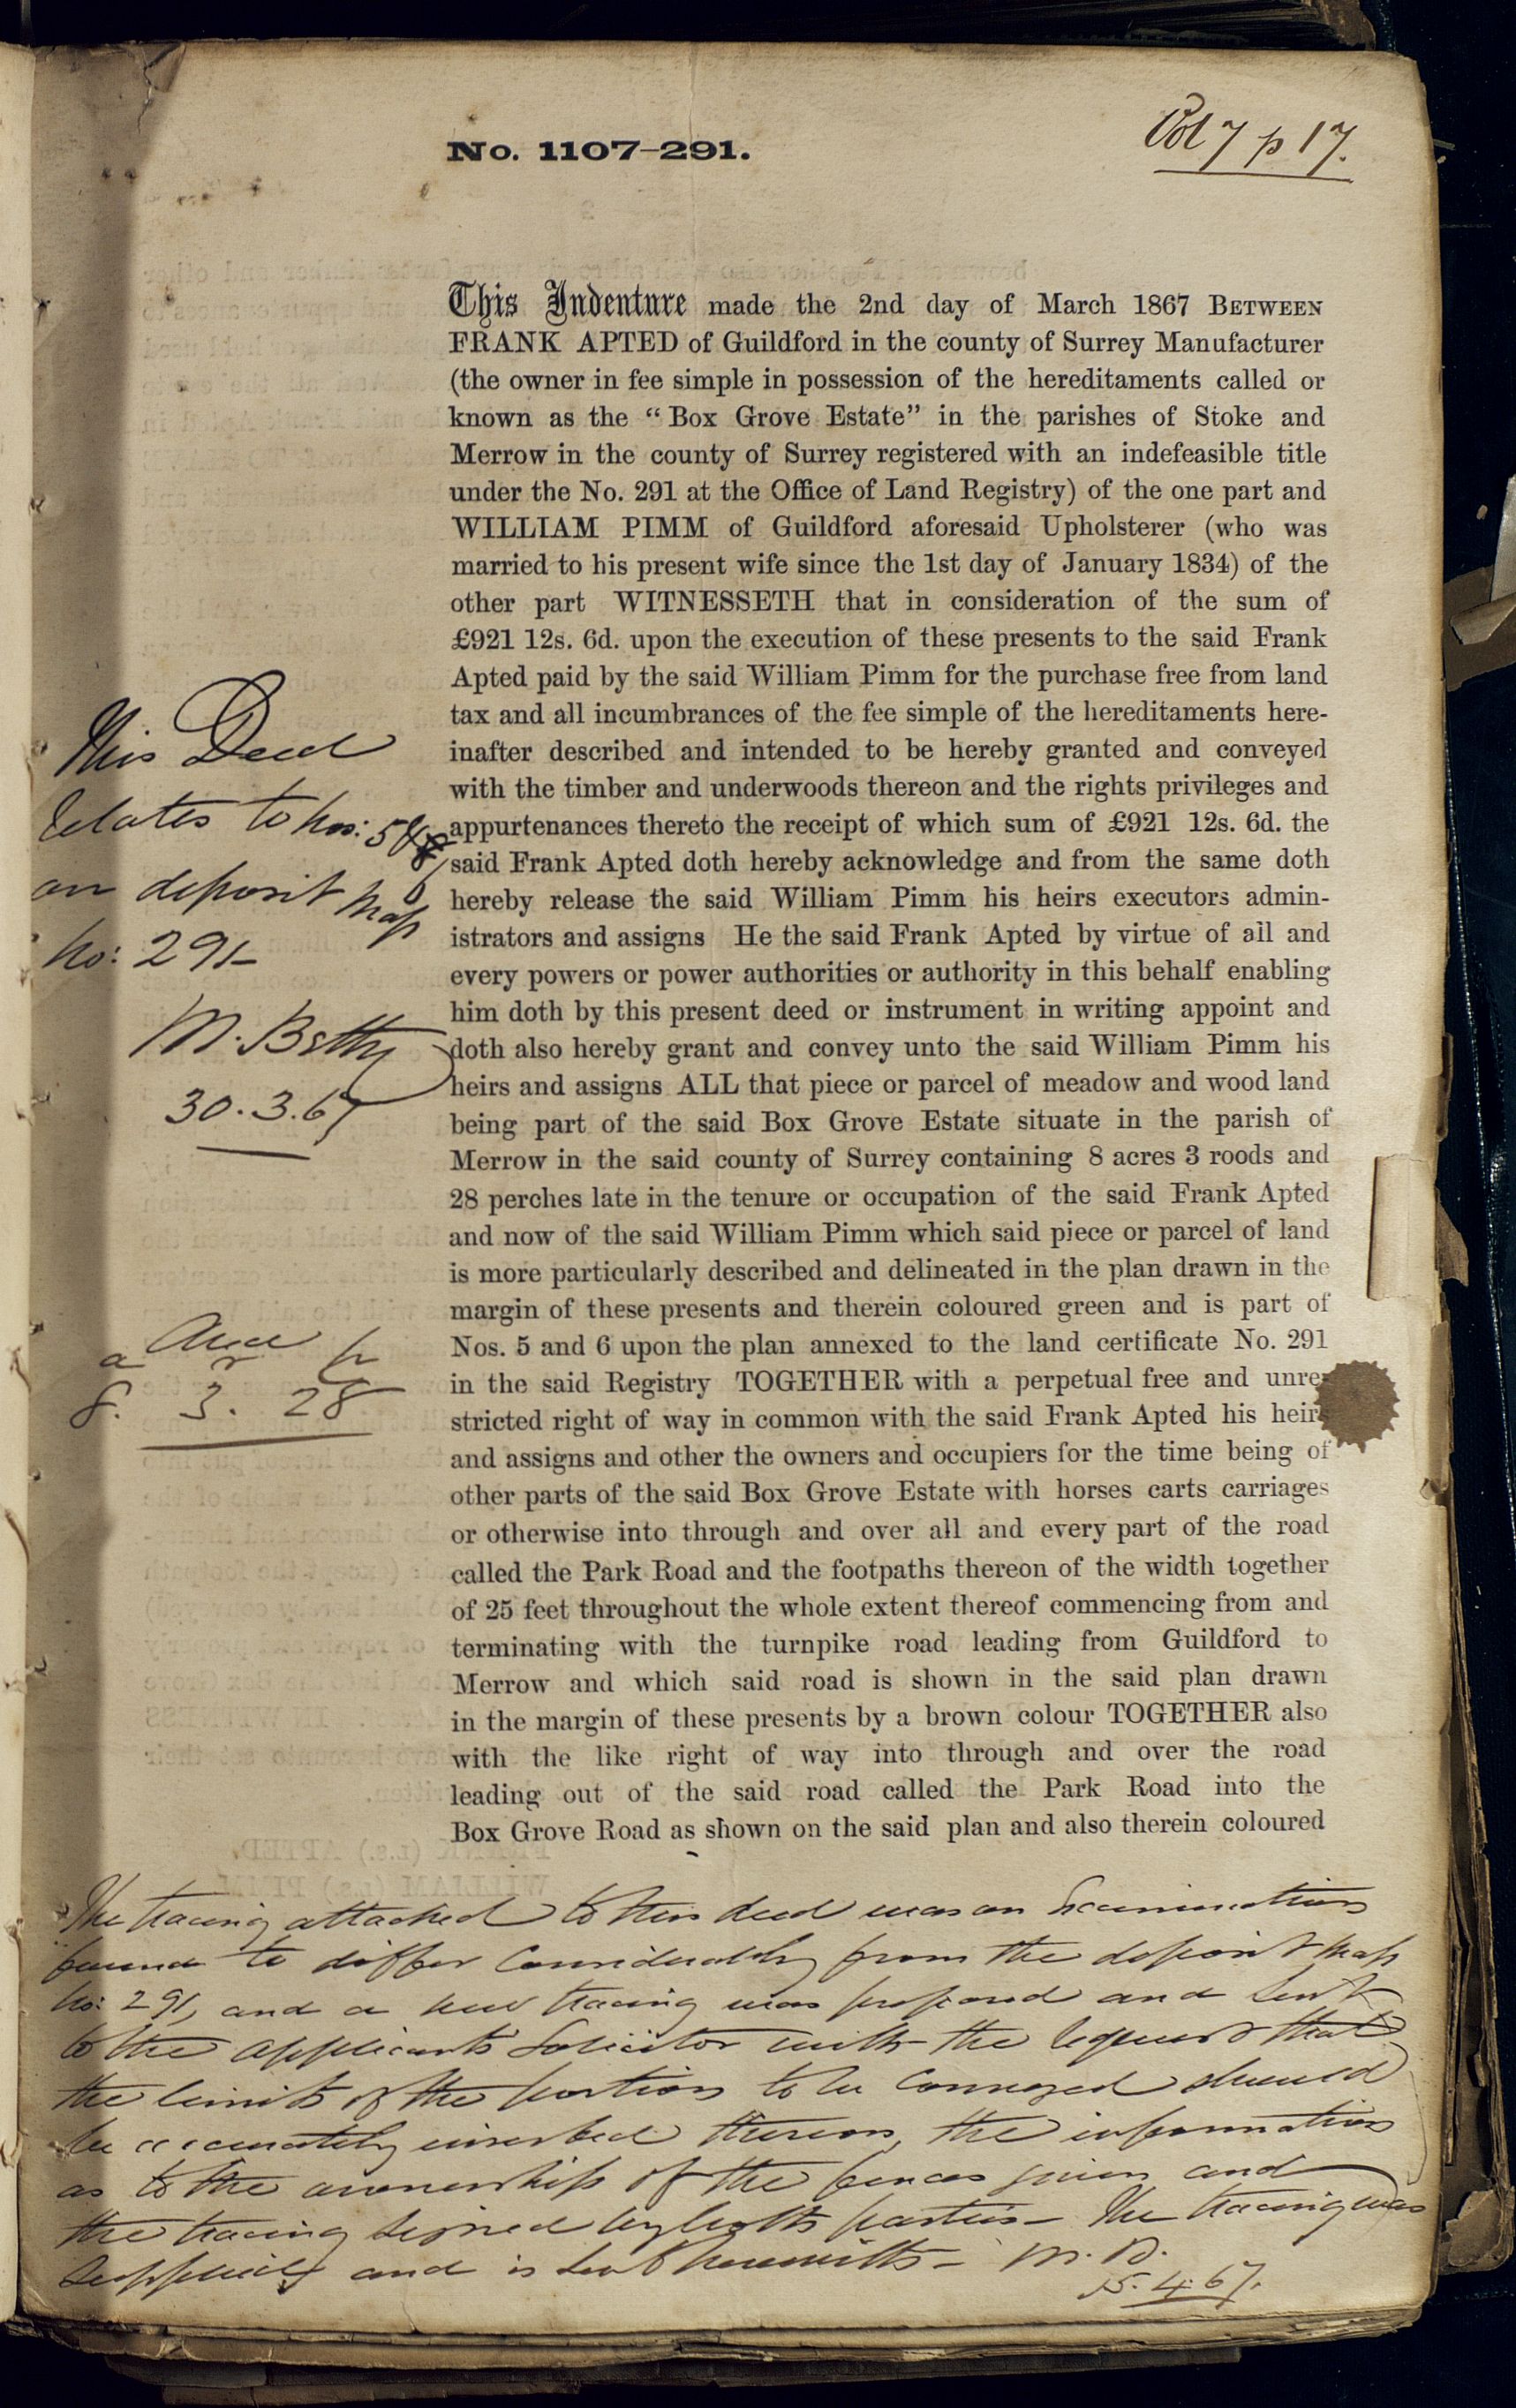 Vol 7 p 17.
No. 1107-291.
This Indenture made the 2nd day of March 1867 BETWEEN
FRANK APTED of Guildford in the county of Surrey Manufacturer
(the owner in fee simple in possession of the hereditaments called or
known as the “Box Grove Estate” in the parishes of Stoke and
Merrow in the county of Surrey registered with an indefeasible title
under the No. 291 at the Office of Land Registry) of the one part and
WILLIAM PIMM of Guildford aforesaid Upholsterer (who was
married to his present wife since the 1st day of January 1834) of the
other part WITNESSETH that in consideration of the sum of
£921 12s. 6d. upon the execution of these presents to the said Frank
Apted paid by the said William Pimm for the purchase free from land
tax and all incumbrances of the fee simple of the hereditaments here-
inafter described and intended to be hereby granted and conveyed
with the timber and underwoods thereon and the rights privileges and
appurtenances thereto the receipt of which sum of £921 12s. 6d. the
said Frank Apted doth hereby acknowledge and from the same doth
hereby release the said William Pimm his heirs executors admin-
istrators and assigns He the said Frank Apted by virtue of all and
every powers or power authorities or authority in this behalf enabling
him doth by this present deed or instrument in writing appoint and
doth also hereby grant and convey unto the said William Pimm his
heirs and assigns ALL that piece or parcel of meadow and wood land
being part of the said Box Grove Estate situate in the parish of
Merrow in the said county of Surrey containing 8 acres 3 roods and
28 perches late in the tenure or occupation of the said Frank Apted
and now of the said William Pimm which said piece or parcel of land
is more particularly described and delineated in the plan drawn in the
margin of these presents and therein coloured green and is part of
Nos. 5 and 6 upon the plan annexed to the land certificate No. 291
in the said Registry TOGETHER with a perpetual free and unre-
stricted right of way in common with the said Frank Apted his heirs
and assigns and other the owners and occupiers for the time being of
other parts of the said Box Grove Estate with horses carts carriages
or otherwise into through and over all and every part of the road
called the Park Road and the footpaths thereon of the width together
of 25 feet throughout the whole extent thereof commencing from and
terminating with the turnpike road leading from Guildford to
Merrow and which said road is shown in the said plan drawn
in the margin of these presents by a brown colour TOGETHER also
with the like right of way into through and over the road
leading out of the said road called the Park Road into the
Box Grove Road as shown on the said plan and also therein coloured
This Deed
relates to Nos: 5
on deposit Map
No: 291
M. Betty
30.3.67
Area
a r p
8. 3. 28
The tracing attached to this deed was on Examination
found to differ Considerably from the deposit Map
No: 291, and a new tracing was prepared and sent
to the applicants Solicitor with the request that
the limits of the portion to be Conveyed should
be accurately inserted thereon, the information
as to the ownership of the fences given and
the tracing signed by both parties - The tracing was
supplied and is sent herewith - M. B.
15.4.67.